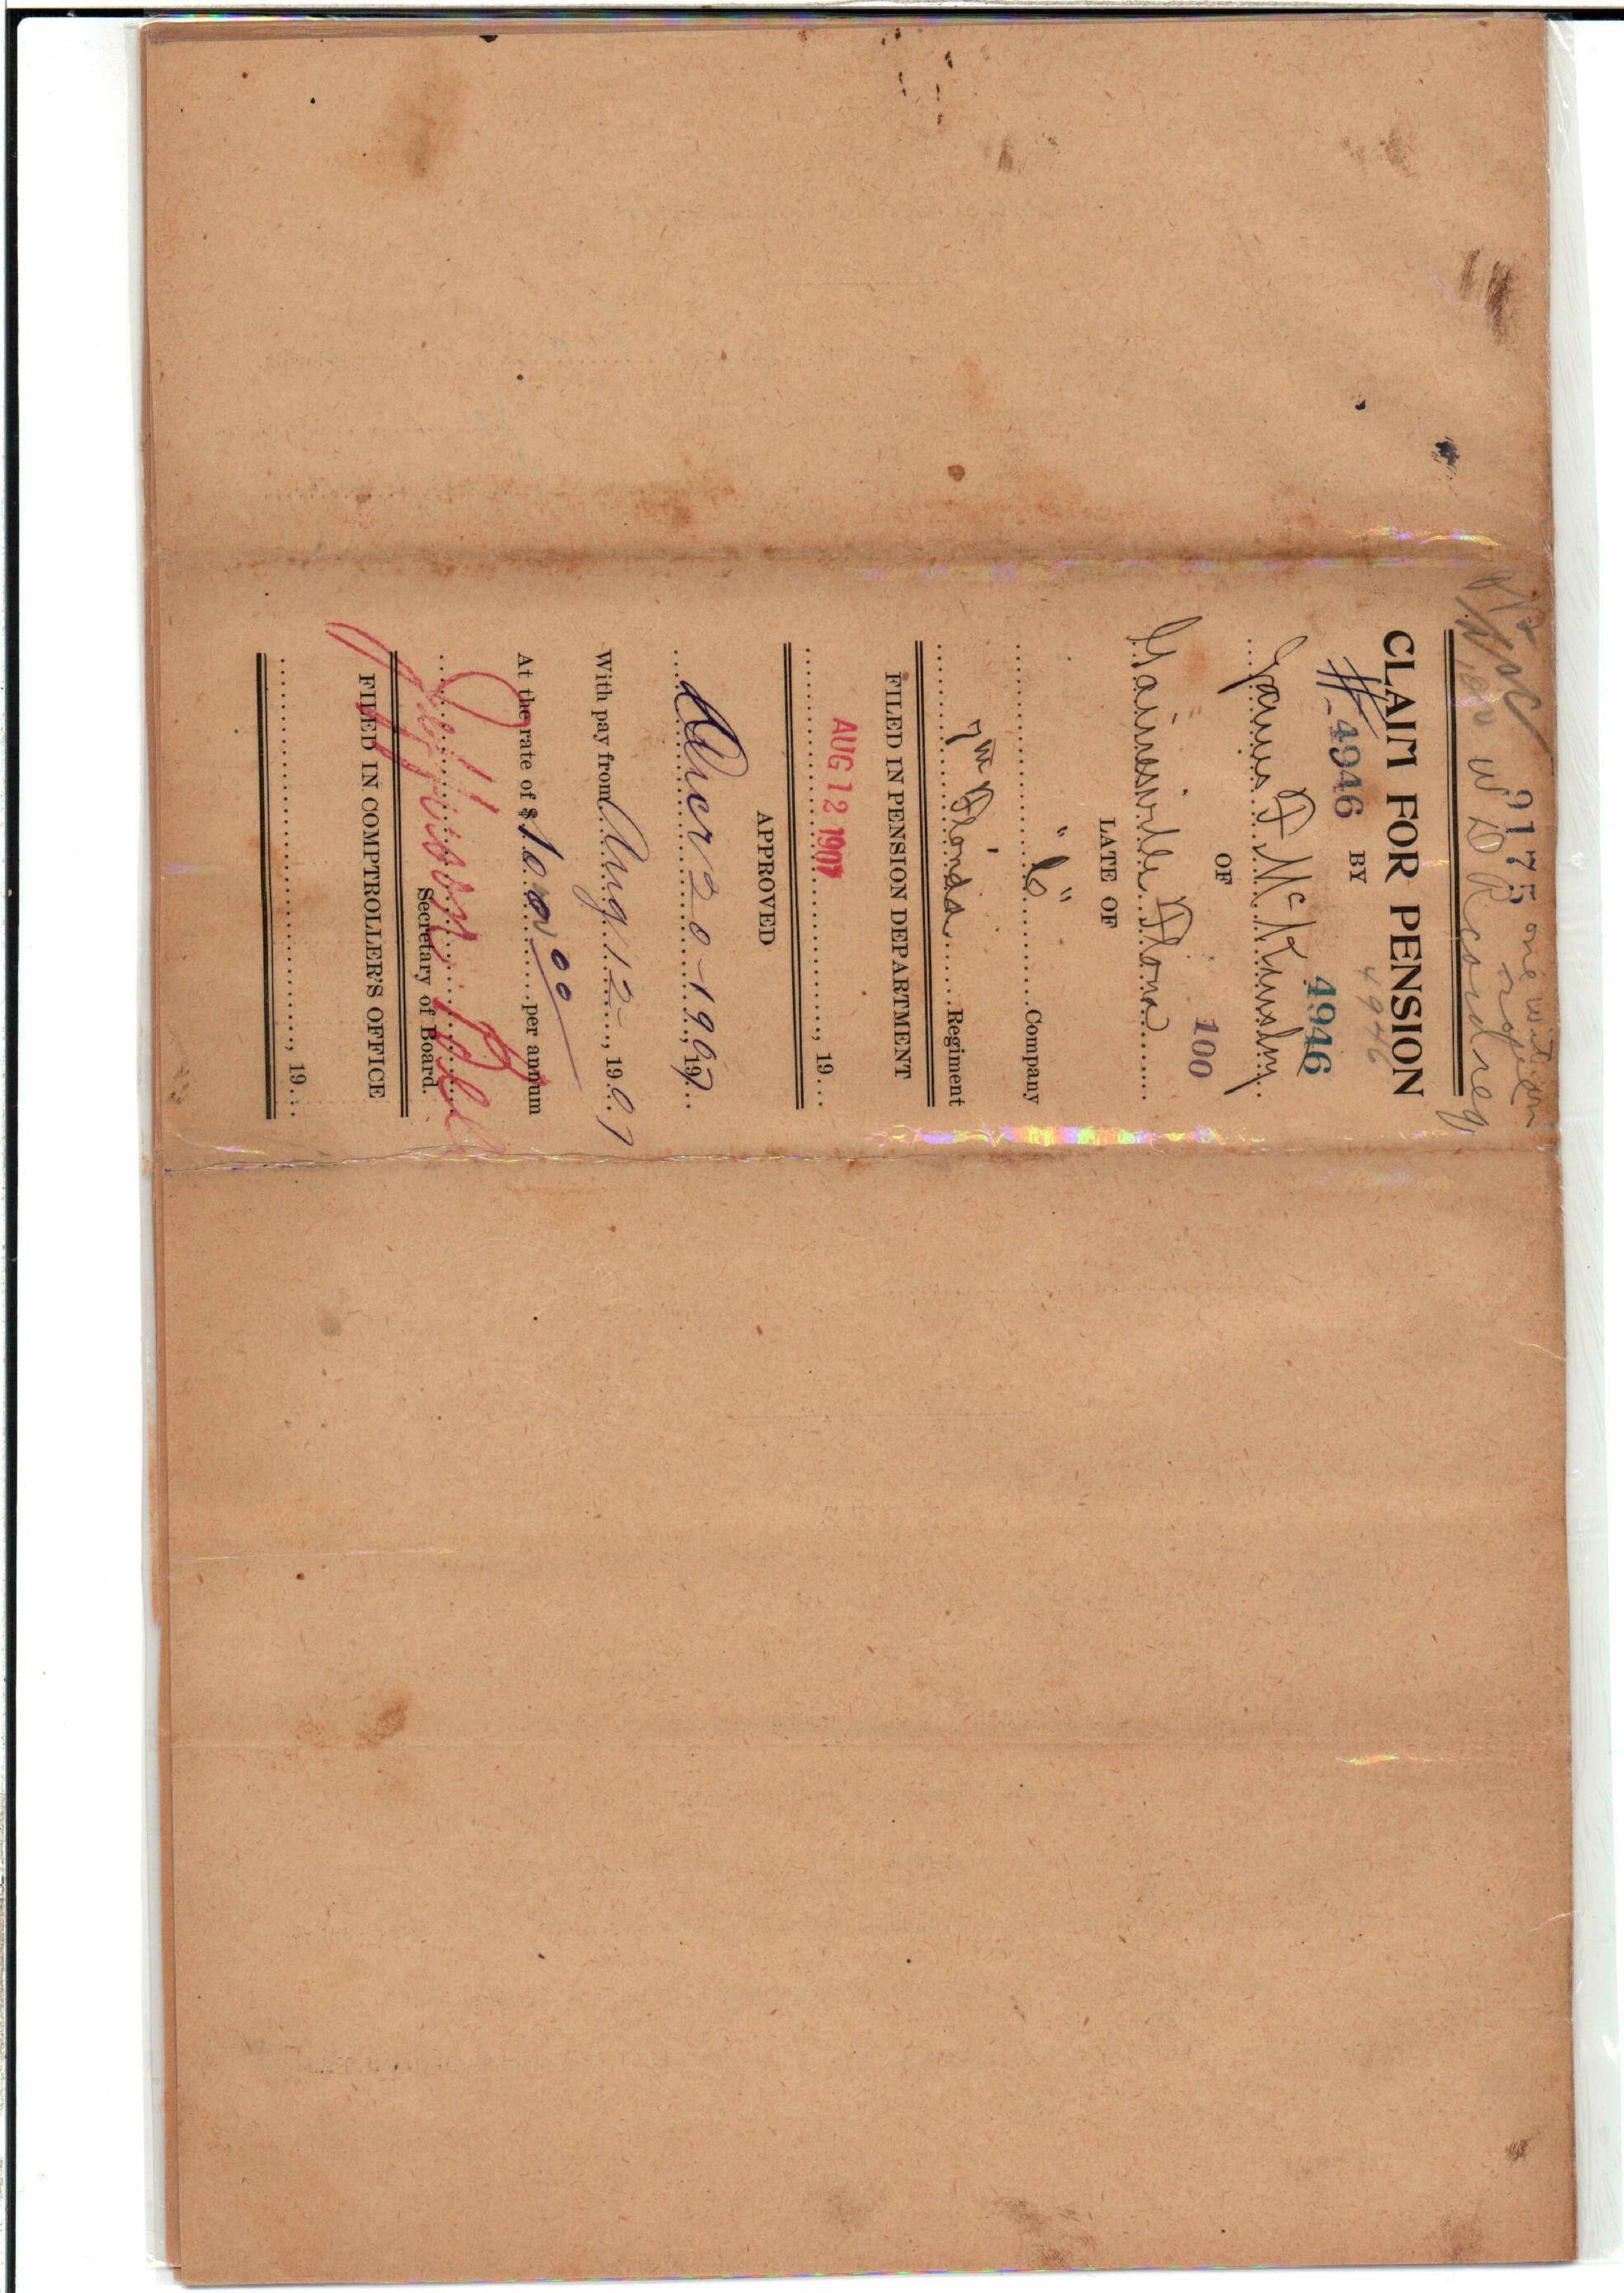 9175 one wit on
W D Record req
CLAIM FOR PENSION
4946
#-4946 BY 4946
James F McKinstry
OF
100
Gainesville Flora
LATE OF
" C " Company
7th Florida Regiment
FILED IN PENSION DEPARTMENT
AUG 12 1907, 19
APPROVED
20-1907, 19
With pay from Aug 12, 1907
At the rate of $100 00 per annum
Jefferson B
Secretary of Board.
FILED IN COMPTROLLER'S OFFICE
, 19